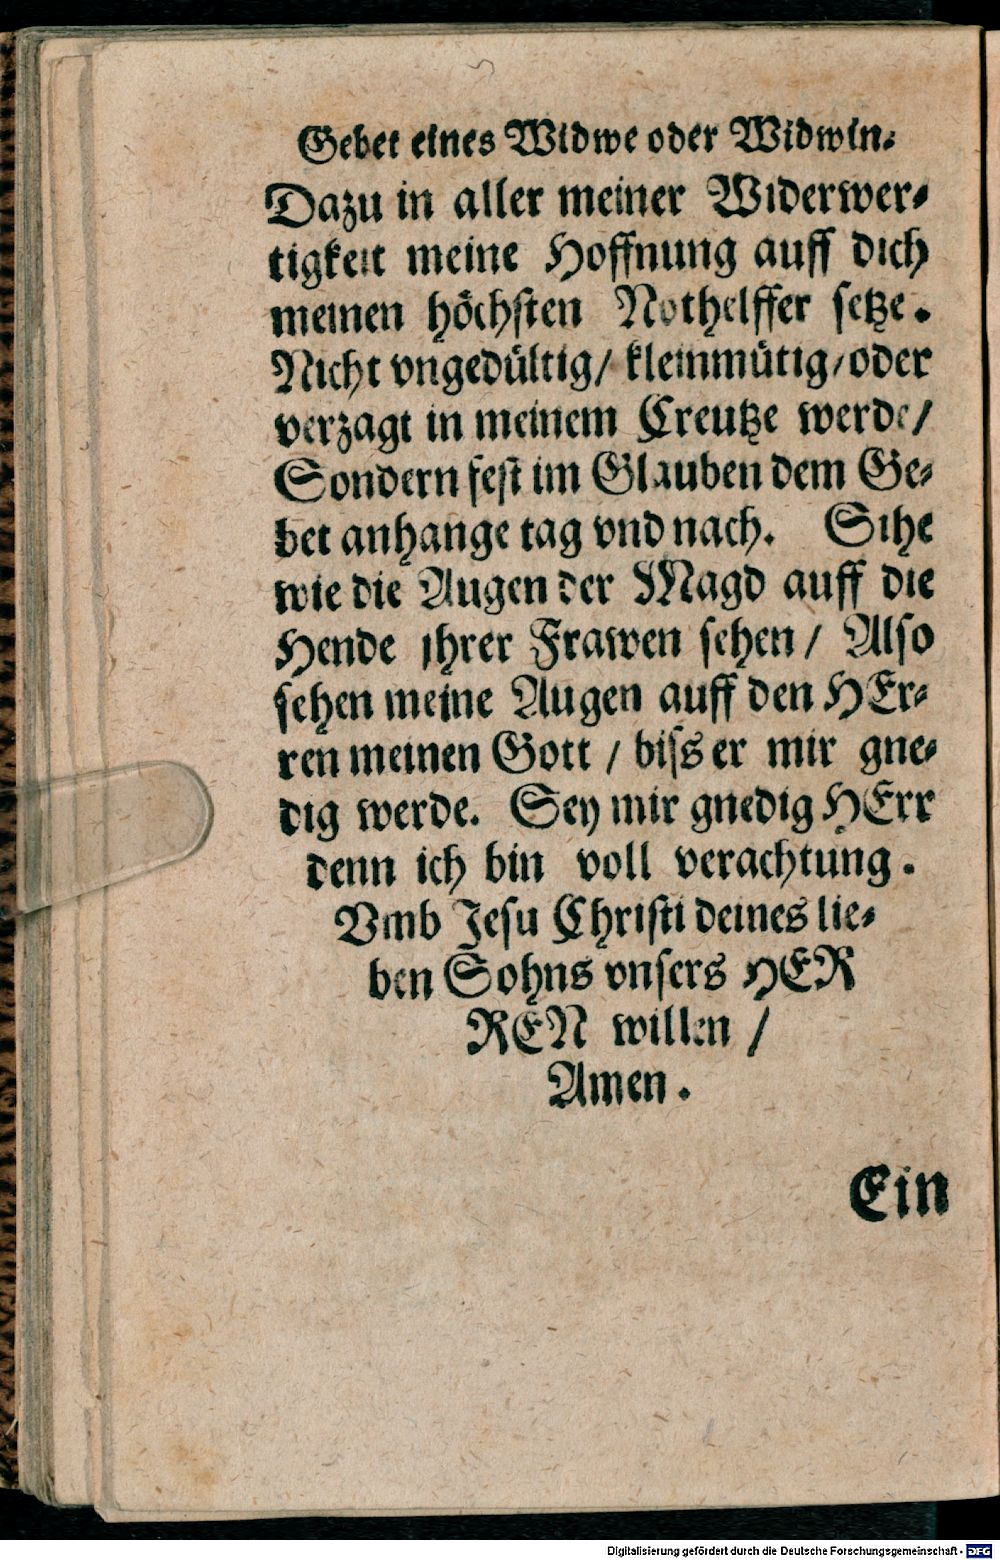 Gebet eines Widwe oder Widwin.
Dazu in aller meiner Widerwer-
tigkeit meine Hoffnung auff dich
meinen höchsten Nothelffer setze.
Nicht vngedültig/ kleinmütig/ oder
verzagt in meinem Creutze werde/
Sondern fest im Glauben dem Ge-
bet anhange tag vnd nach. Sihe
wie die Augen der Magd auff die
Hende ihrer Frawen sehen / Also
sehen meine Augen auff den HEr-
ren meinen Gott / biss er mir gne-
dig werde. Sey mir gnedig HErr
denn ich bin voll verachtung.
Vmb Jesu Christi deines lie-
ben Sohns vnsers HER
REN willen /
Amen.
Ein
Digitalisierung gefördert durch die Deutsche Forschungsgemeinschaft - DFG